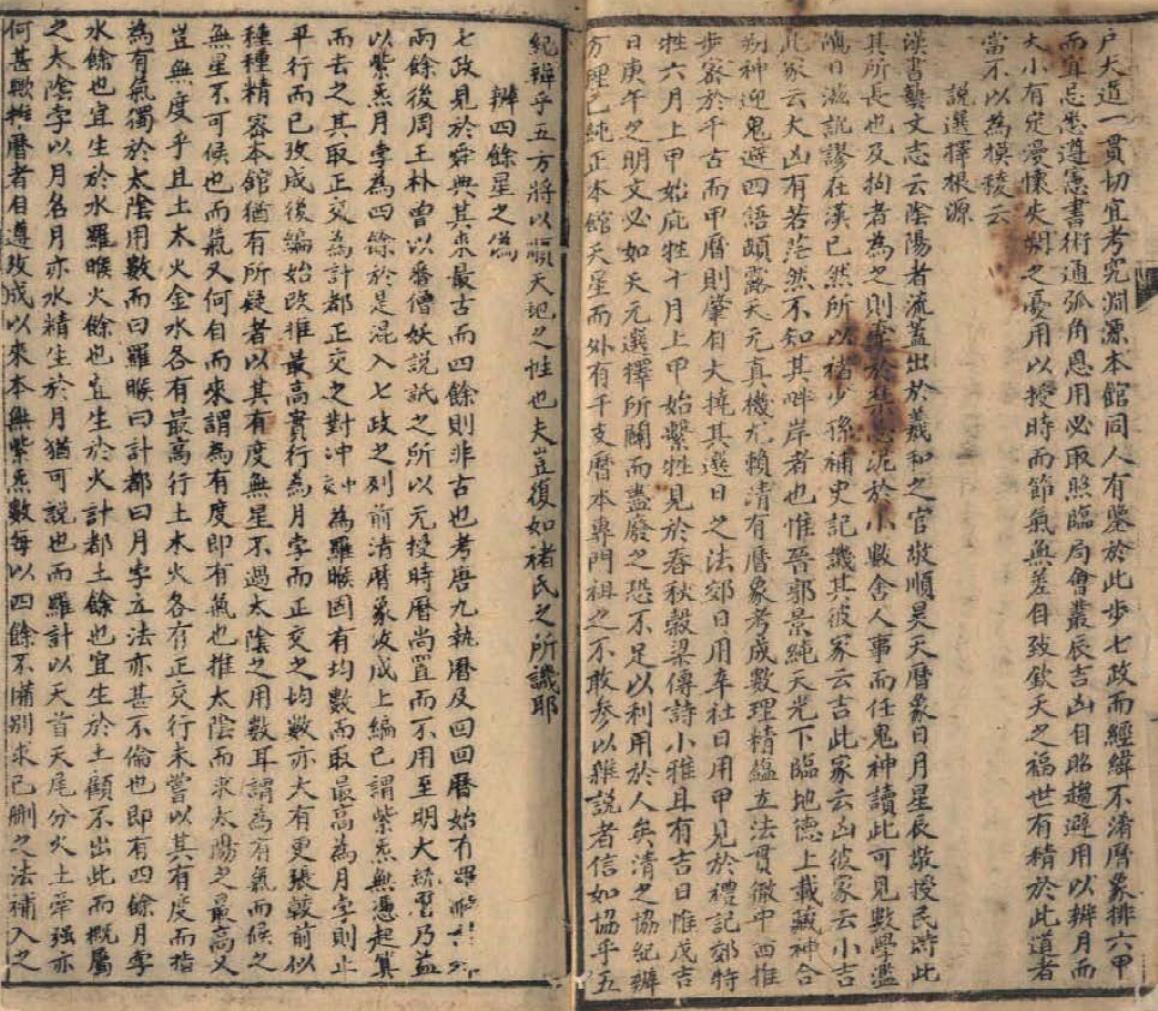 户天道一貫切宜考究淵源本館同人有鑒於此步七政而經緯不淆曆象排六甲
而宜忌悉遵憲書術通弧角恩用必取照臨局會叢辰吉凶自昭趨避用以辨月而
大小有定漫懷失朔之憂用以授時而節氣無差自致欽天之福世有精於此道者
當不以為摸稜云
說選擇根源
漢書藝文志云陰陽者流蓋出於羲和之官敬順昊天曆象日月星辰敬授民時此
其所長也及拘者為之則牽於禁忌泥於小數舍人事而任鬼神讀此可見數學濫
觴日滋訛謬在漢已然所以褚少孫補史記譏其彼家云吉此家云凶彼家云小吉
此家云大凶有若茫然不知其畔岸者也惟晉郭景純天光下臨地德上載藏神合
朔神迎鬼避四語頗露天元真機尤賴清有曆象考成數理精蘊立法貫徹中西推
步密於千古而甲曆則肇自大撓其選日之法郊日用辛社日用甲見於禮記郊特
牲六月上甲始庀牲十月上甲始繫牲見於春秋穀梁傳詩小雅且有吉日惟戊吉
日庚午之明文必如天元選擇所闢而盡廢之恐不足以利用於人矣清之協紀辨
方理已純正本館天星而外有干支曆本專門祖之不敢參以雜說者信如協乎五
紀辨乎五方將以順天地之性也夫豈復如褚氏之所譏耶
辨四餘星之偽
七政見於舜典其來最古而四餘則非古也考唐九執曆及回回曆始有羅睺計
而餘後周王朴曾以番僧妖說詆之所以元授時曆尚置而不用至明大統曆乃益
以紫炁月孛為四餘於是混入七政之列前清曆象攷成上編已謂紫炁無憑起算
而去之其取正交為計都正交之對冲中交為羅睺因有均數而取最高為月孛則止
平行而已攷成後編始改推最高實行為月孛而正交之均數亦大有更張較前似
種種精密本館猶有所疑者以其有度無星不過太陰之用數耳謂為有氣而候之
無星不可候也而氣又何自而來謂為有度即有氣也推太陰而求太陽之最高又
豈無度乎且土木火金水各有最高行土木火各有正交行未嘗以其有度而指
為有氣獨於太陰用數而曰羅睺曰計都曰月孛立法亦甚不倫也即有四餘月孛
水餘也宜生於水羅睺火餘也宜生於火計都土餘也宜生於土顧不出此而概屬
之太陰孛以月名月亦水精生於月猶可說也而羅計以天首天尾分火土牽强亦
何甚歟推曆者自遵攷成以來本無紫炁數每以四餘不滿别求已刪之法補入之